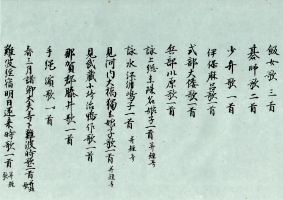 飯女歌三首
碁師歌二首
少弁歌一首
伊保麻呂歌一首
式部大倭歌一首
兵部川原歌一首
詠上総末珠名娘子一首 并短歌
詠水江浦嶋子一首 并短歌
見河内大橋獨去娘子歌一首 并短歌
見武蔵小埼沼鴨作歌一首
那賀郡曝井歌一首
手綱濱歌一首
春三月諸卿大夫等下難波時歌二首 并短歌
難波経宿明日還来時歌一首 并短歌